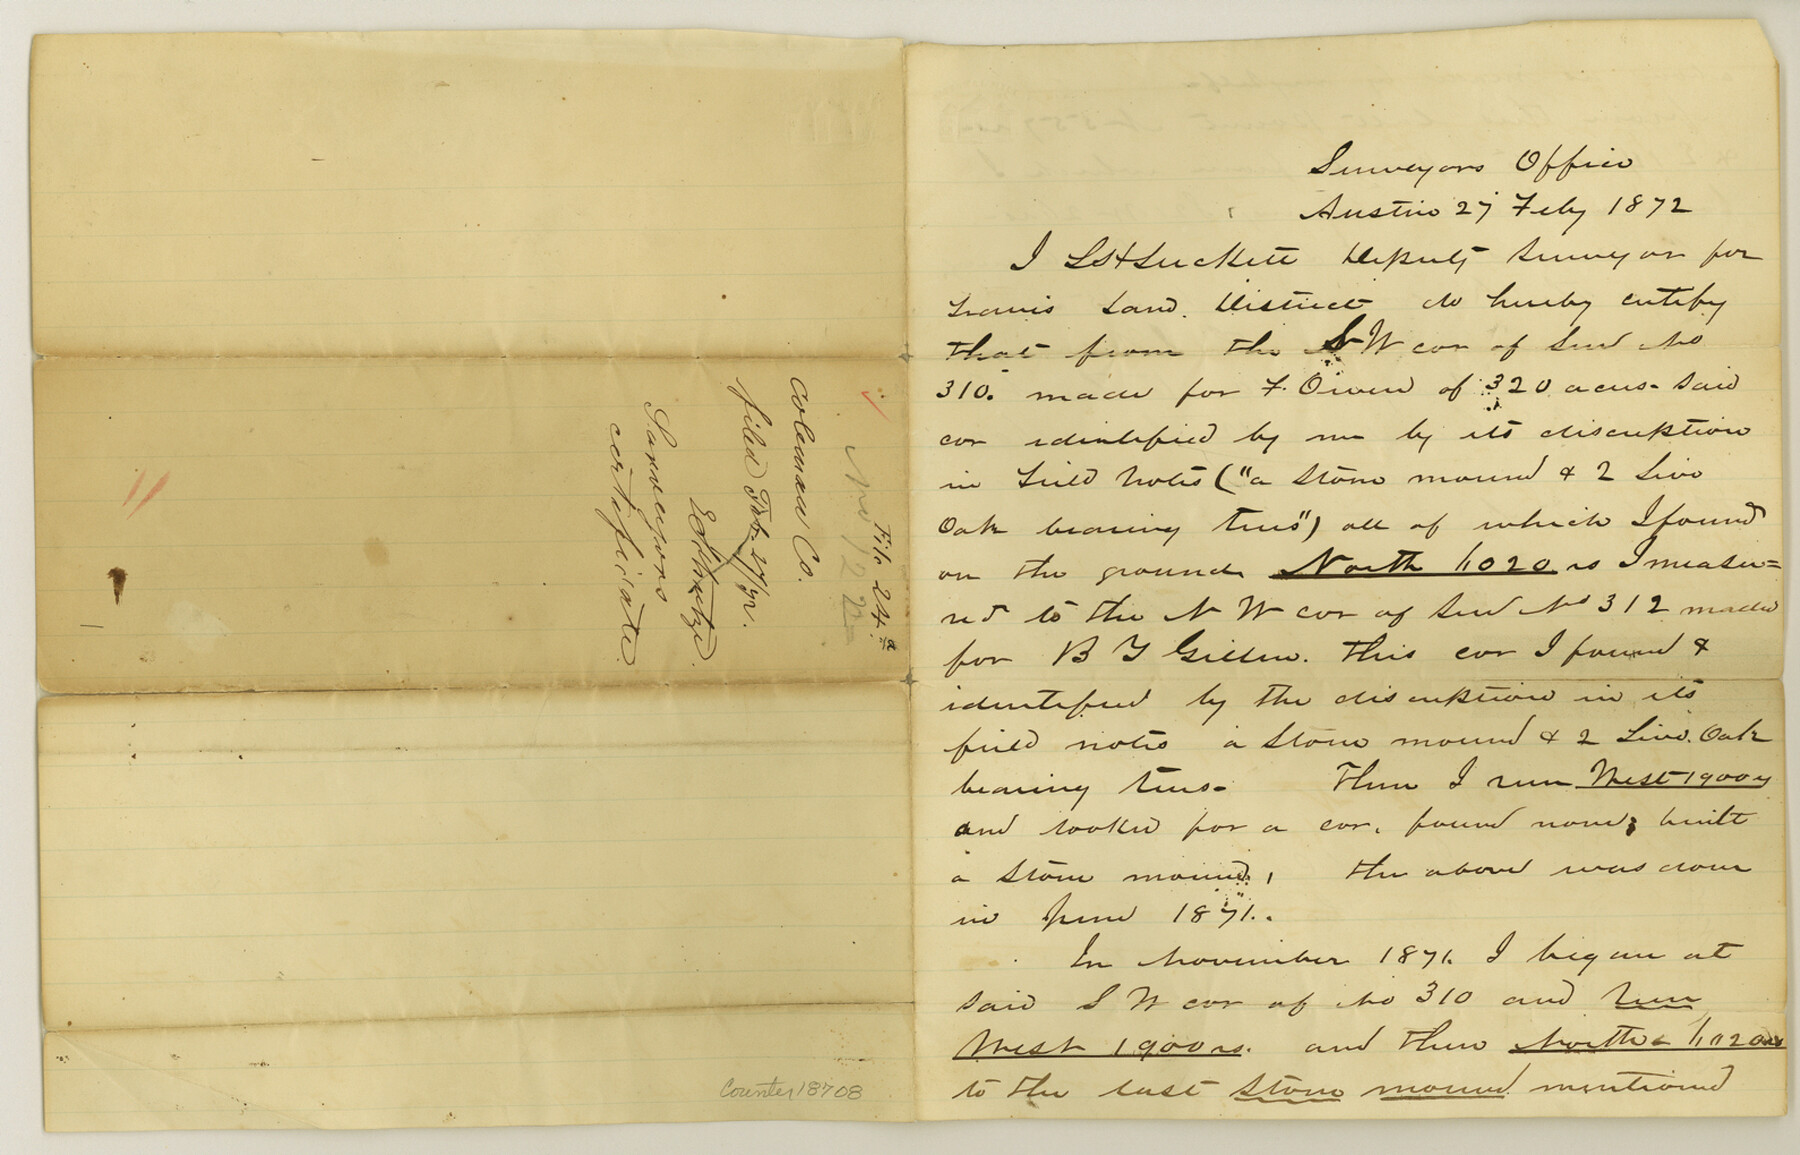 File 24a
Coleman Co.
filed Feb. 27/72.
Surveyors
certificate
Counter 18708
Surveyors Office
Austin 27 Feby 1872
I Luckett Deputy Surveyor for
Travis Land District do hereby certify
that from the SW cor of Sur No
310. made for F. Owen of 320 acres said
cor identified by me by its discription
in field notes ("a stone mound & 2 Live
Oak bearing trees") all of which I found
on the ground North 1,020 vs I measu=
red to the N W cor of Sur No 312 made
for B Y Gillen. this cor I found &
identified by the discription in its
field notes a stone mound & 2 Live Oak
bearing trees. Then I run West 1900 v
and looked for a cor, found none; built
a stone mound, the above was done
in June 1871.
In November 1871. I began at
said S W cor of No 310 and run
West 1900 vs. and then North 1,020 vs
to the last stone mound mentioned